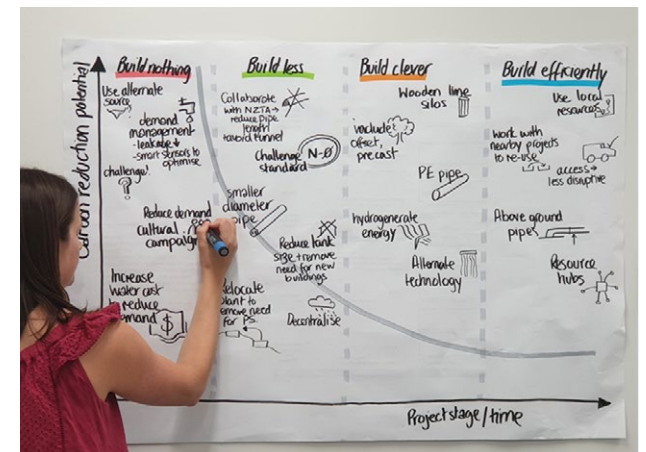 Carbon reduction potential
Build nothing
Use alternate
source
demand
management
- leakage ↓
- smart sensors to
optimise
challenge!
?
Reduce demand
cultural
campaign
Increase
water cost
to reduce
demand
$
Build less
Collaborate
with NZTA →
reduce pipe
length
toavoid tunnel
Challenge
standard
N-0
smaller
diameter
pipe
Reduce tank
size + remove
need for new
buildings
Relocate
plant to
remove need
for PS.
Decentralise
Build clever
Wooden lime
silos
include
offset,
precast
PE pipe
hydrogenerate
energy
Alternate
technology
Build efficiently
Use local
resources
Work with
nearby projects
to re-use
access →
less disruptive
Above ground
pipes
Resource
hubs
Project stage / time